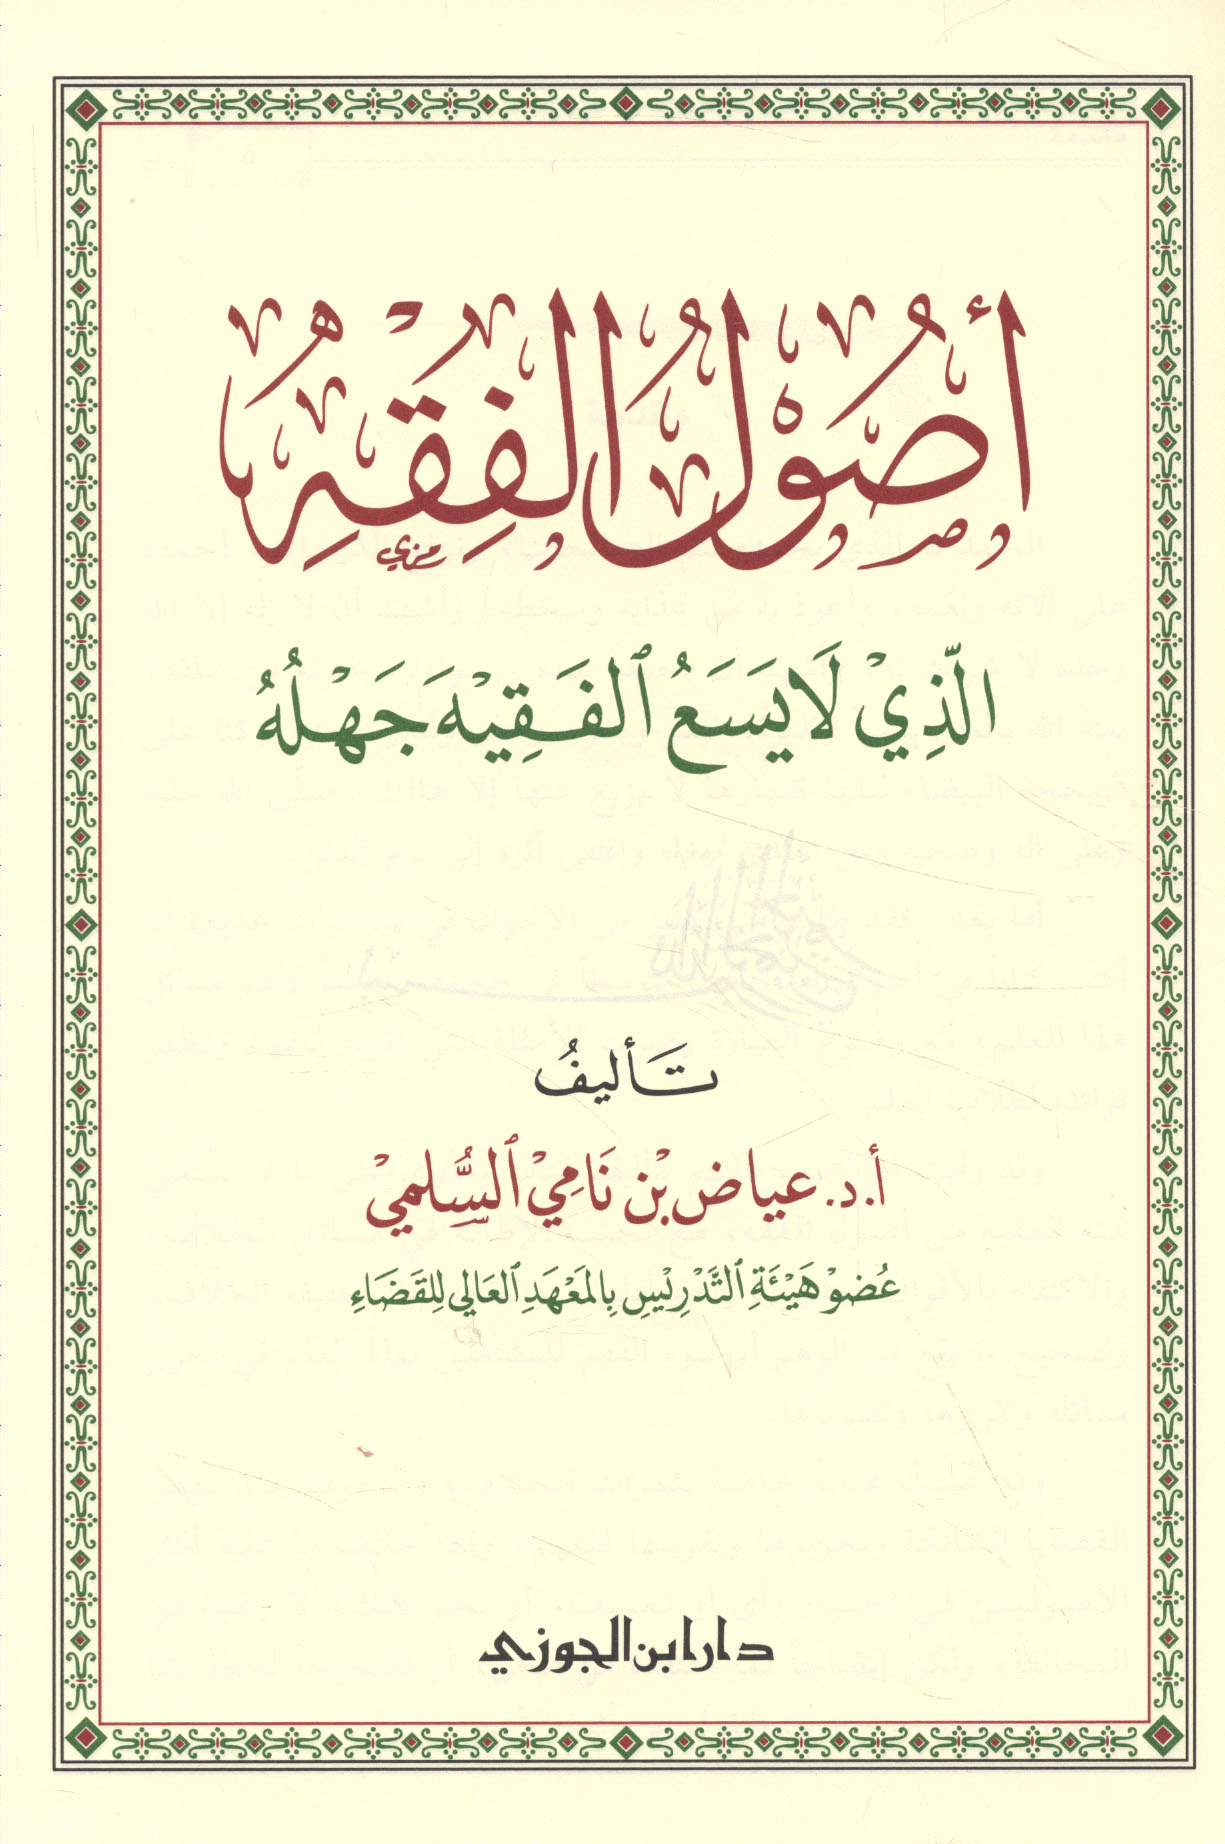 أُصُوْلُ الفِقْهِ
الّذِيْ لَا يَسَعُ ٱلفَقِيْهَ جَهْلُهُ
تَأليفُ
أ.د. عياض بْن نَامِيْ ٱلسُّلمِيْ
عُضوْ هَيْئَةِ ٱلتَّدْرِيْسِ بِالمَعْهَدِ ٱلعَالي لِلقَضَاءِ
دار ابن الجوزي